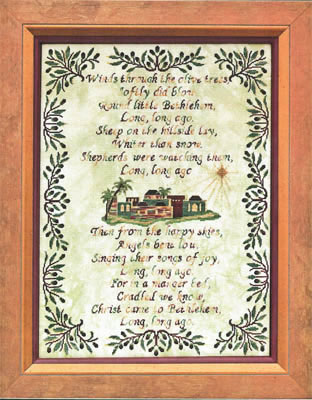 Winds through the olive trees
Softly did blow,
Round little Bethlehem,
Long, long ago.
Sheep on the hillside lay,
Whiter than snow.
Shepherds were watching them,
Long, long ago
Then from the happy skies,
Angels bent low.
Singing their songs of joy,
Long, long ago.
For in a manger bed,
Cradled we know,
Christ came to Bethlehem,
Long, long ago.